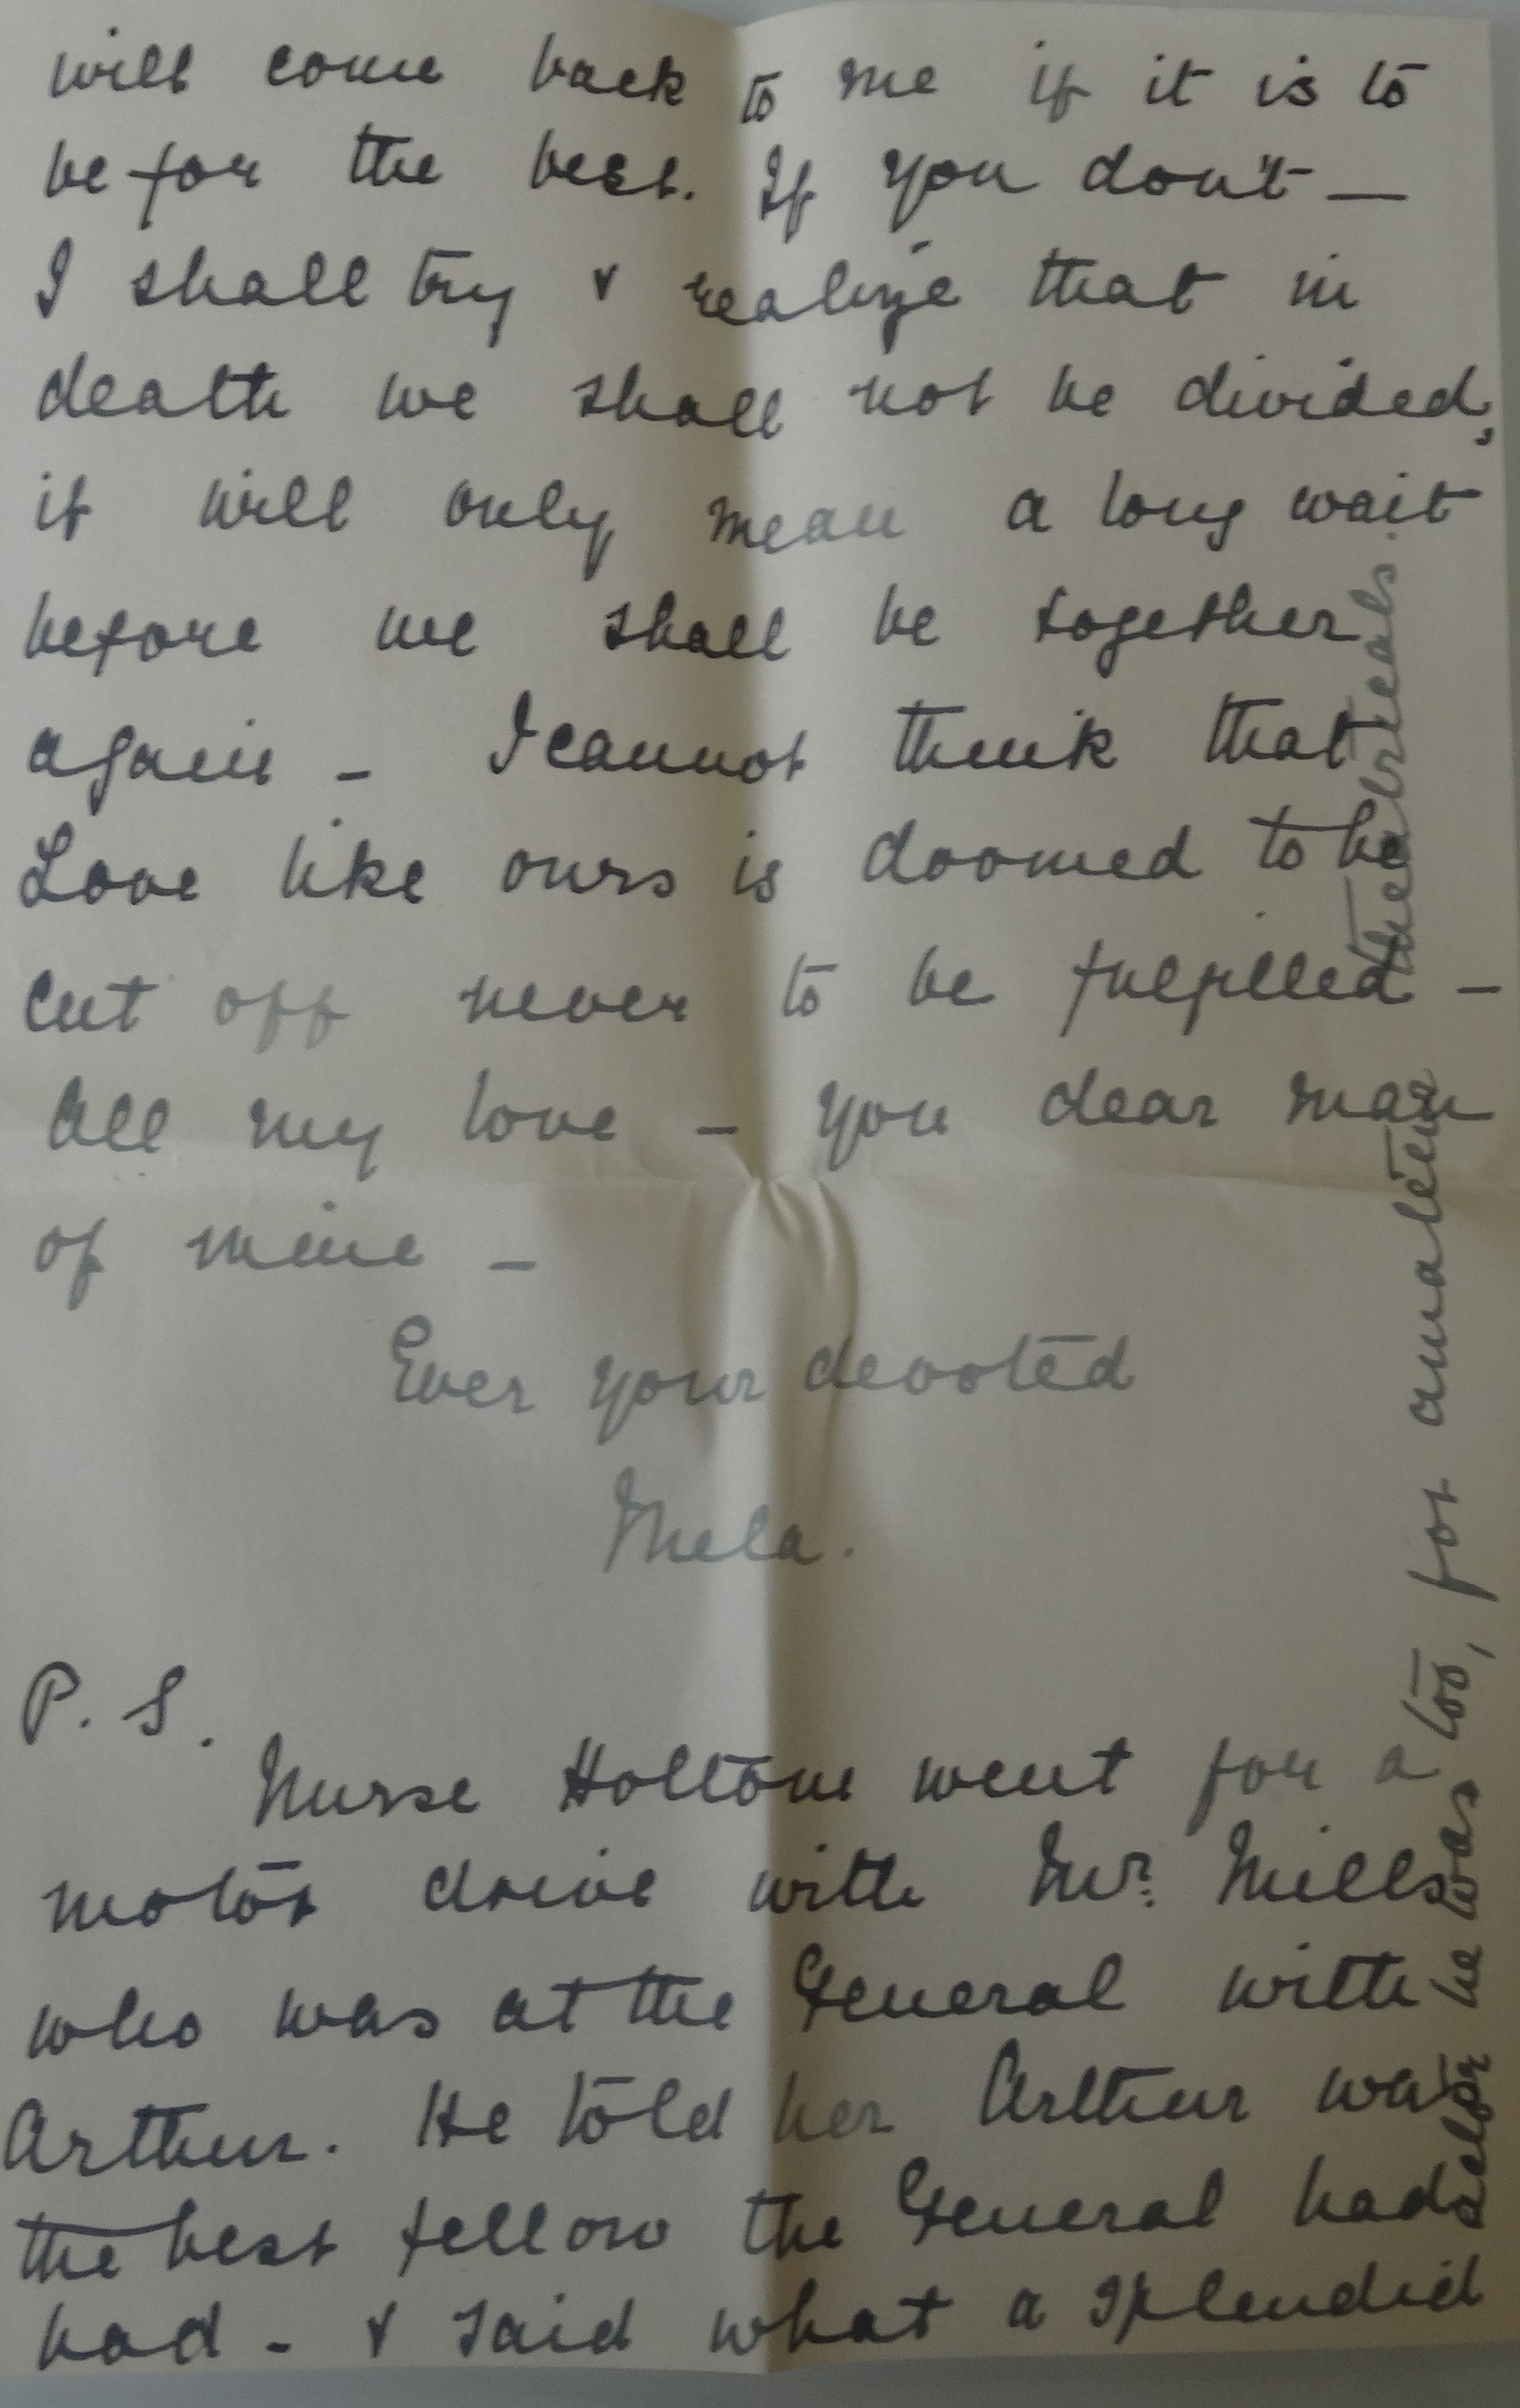 will come back to me if it is to
be for the best. If you don't —
I shall try & realize that in
death we shall not be divided,
it will only mean a long wait
before we shall be together
again - I cannot think that
Love like ours is doomed to be
cut off never to be fulfilled -
All my love - you dear man
of mine -
Ever your devoted
Mela.
P. S.
Nurse Holtom went for a
motor drive with Mr. Mills
who was at the General with
Arthur. He told her Arthur was
the best fellow the General had
had - & said what a splendid
actor he was too, for amateur
theatricals.